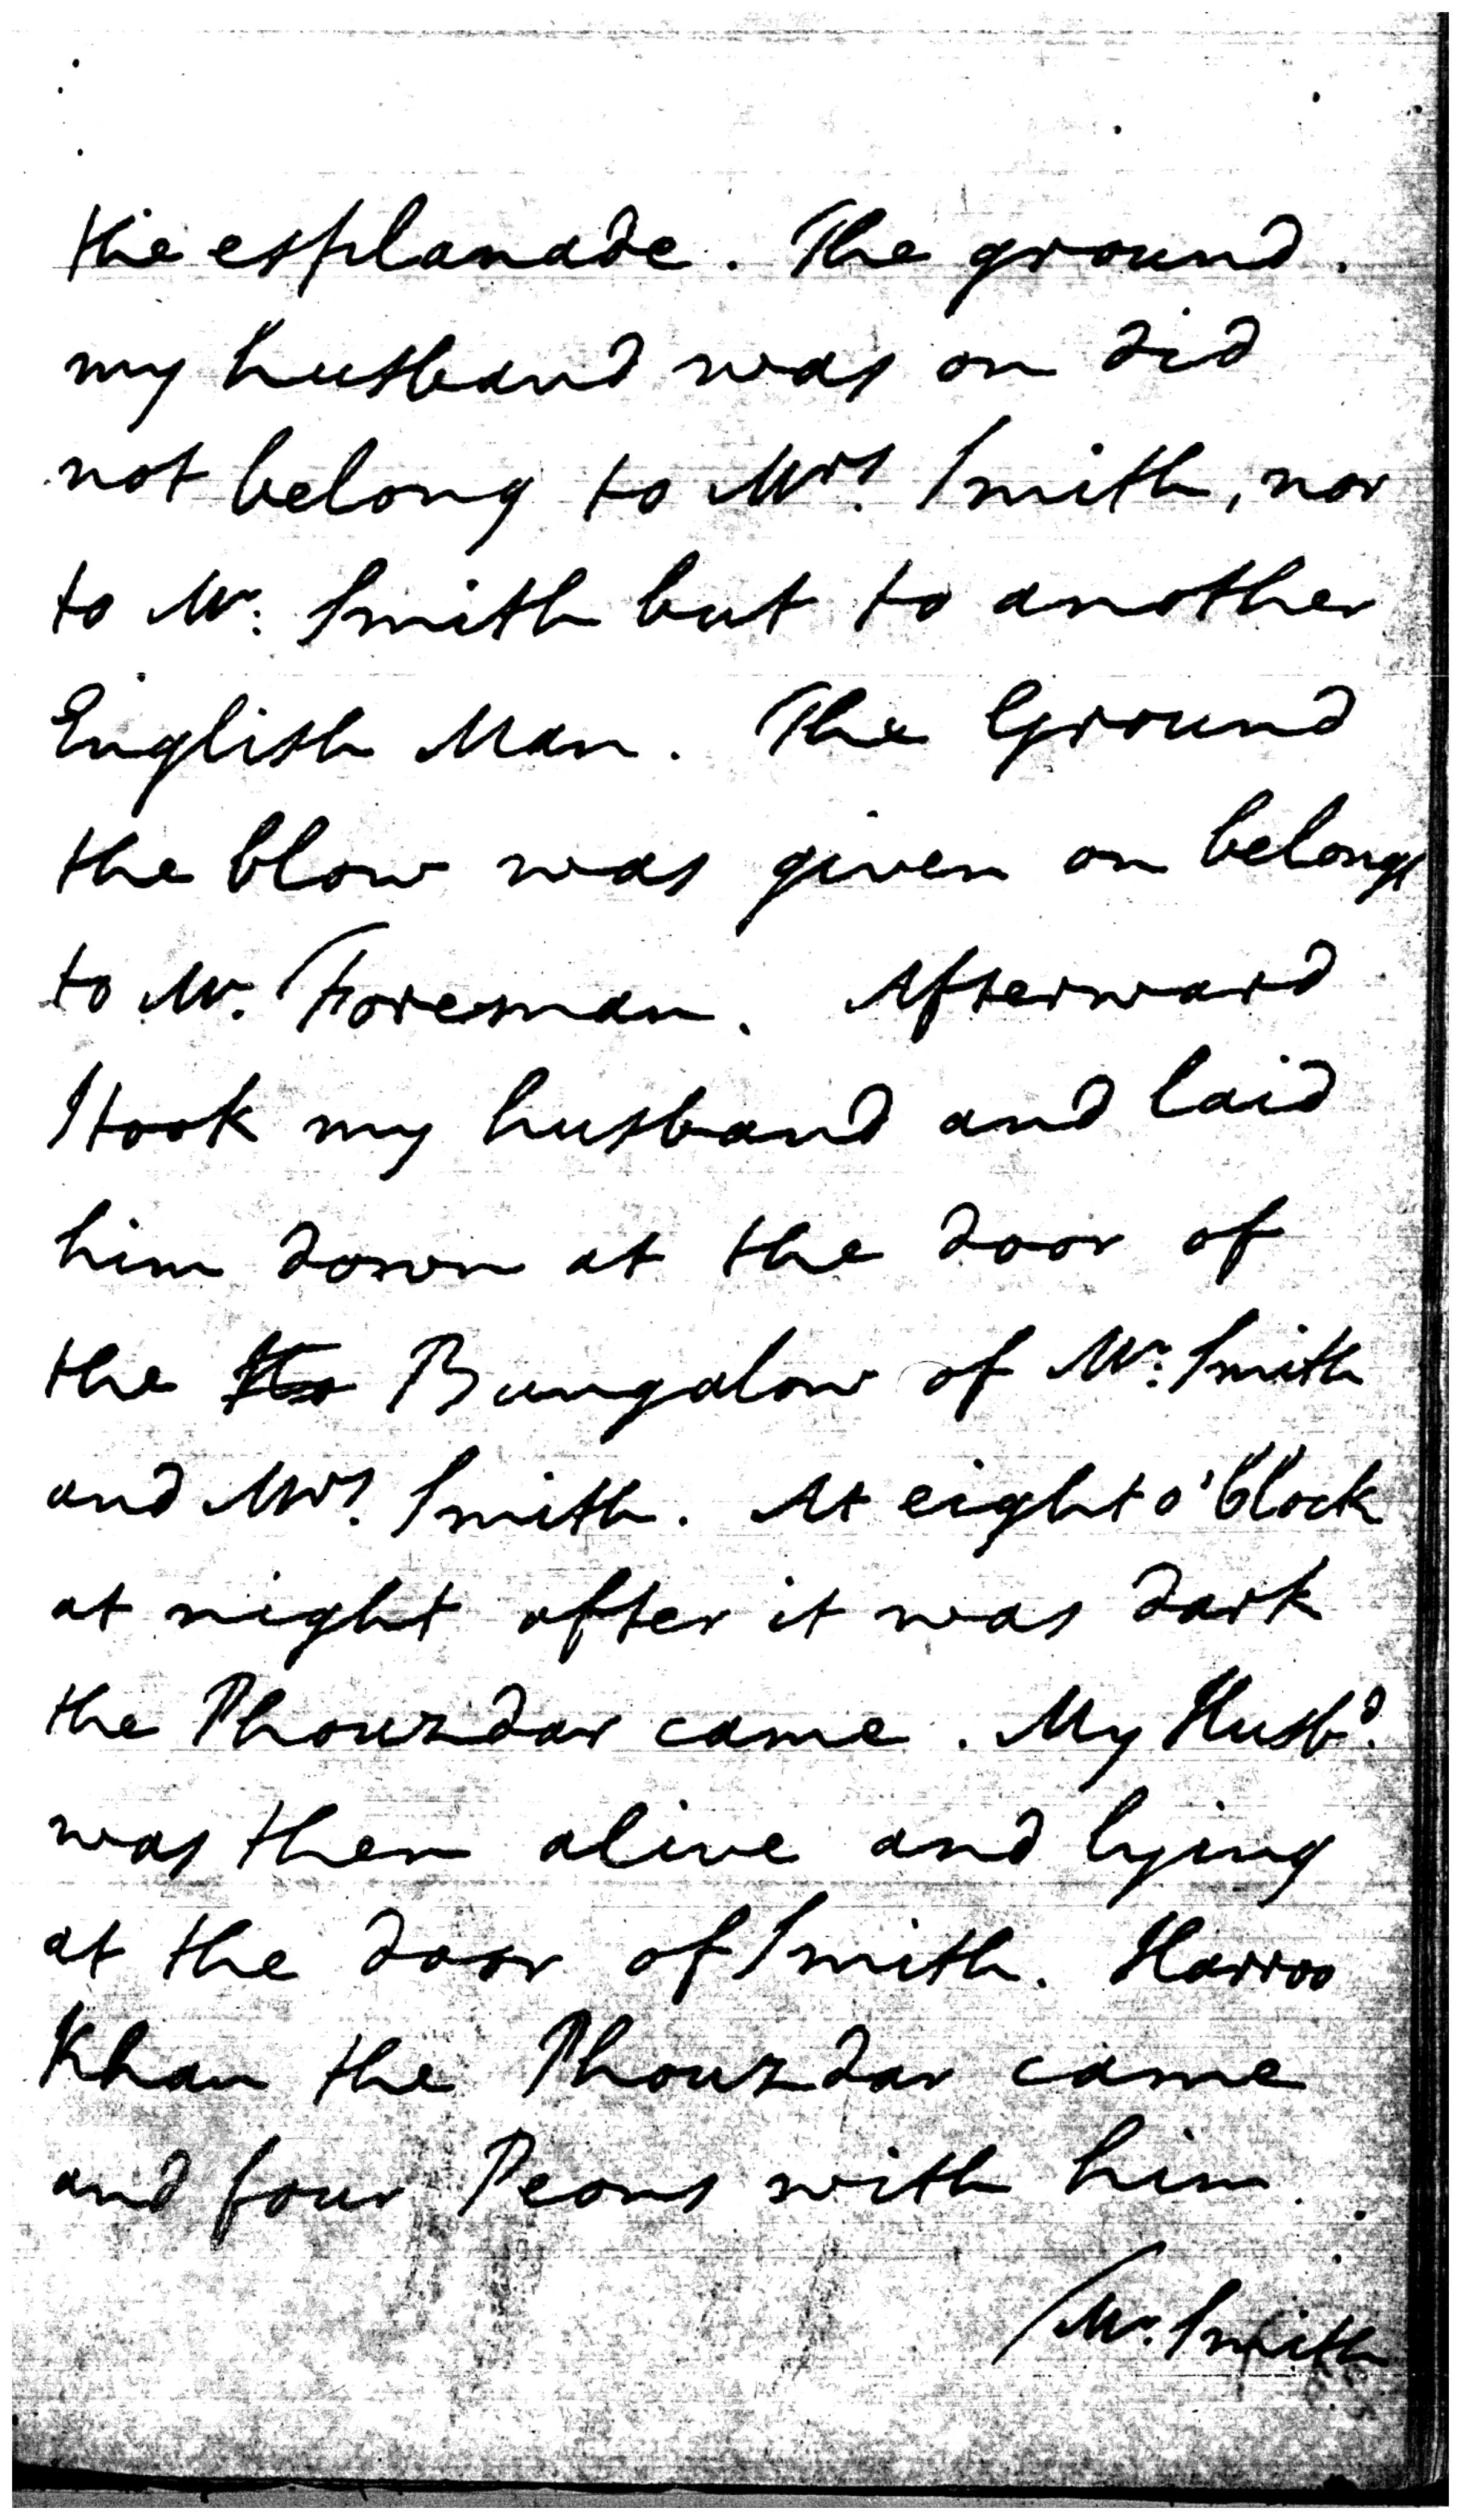 the esplanade. The ground.
my husband was on did
not belong to Mrs. Smith, nor
to Mr. Smith but to another
English Man. The Ground
the blow was given on belongs
to Mr. Foreman. Afterward
I took my husband and laid
him down at the door of
the Bungalow of Mr. Smith
and Mrs. Smith. At eight o'Clock
at night after it was dark
the Phouzdar came. My Husbd.
was then alive and lying
at the door of Smith. Harroo
Khan the Phouzdar came
and four Peons with him.
Mr. Smith